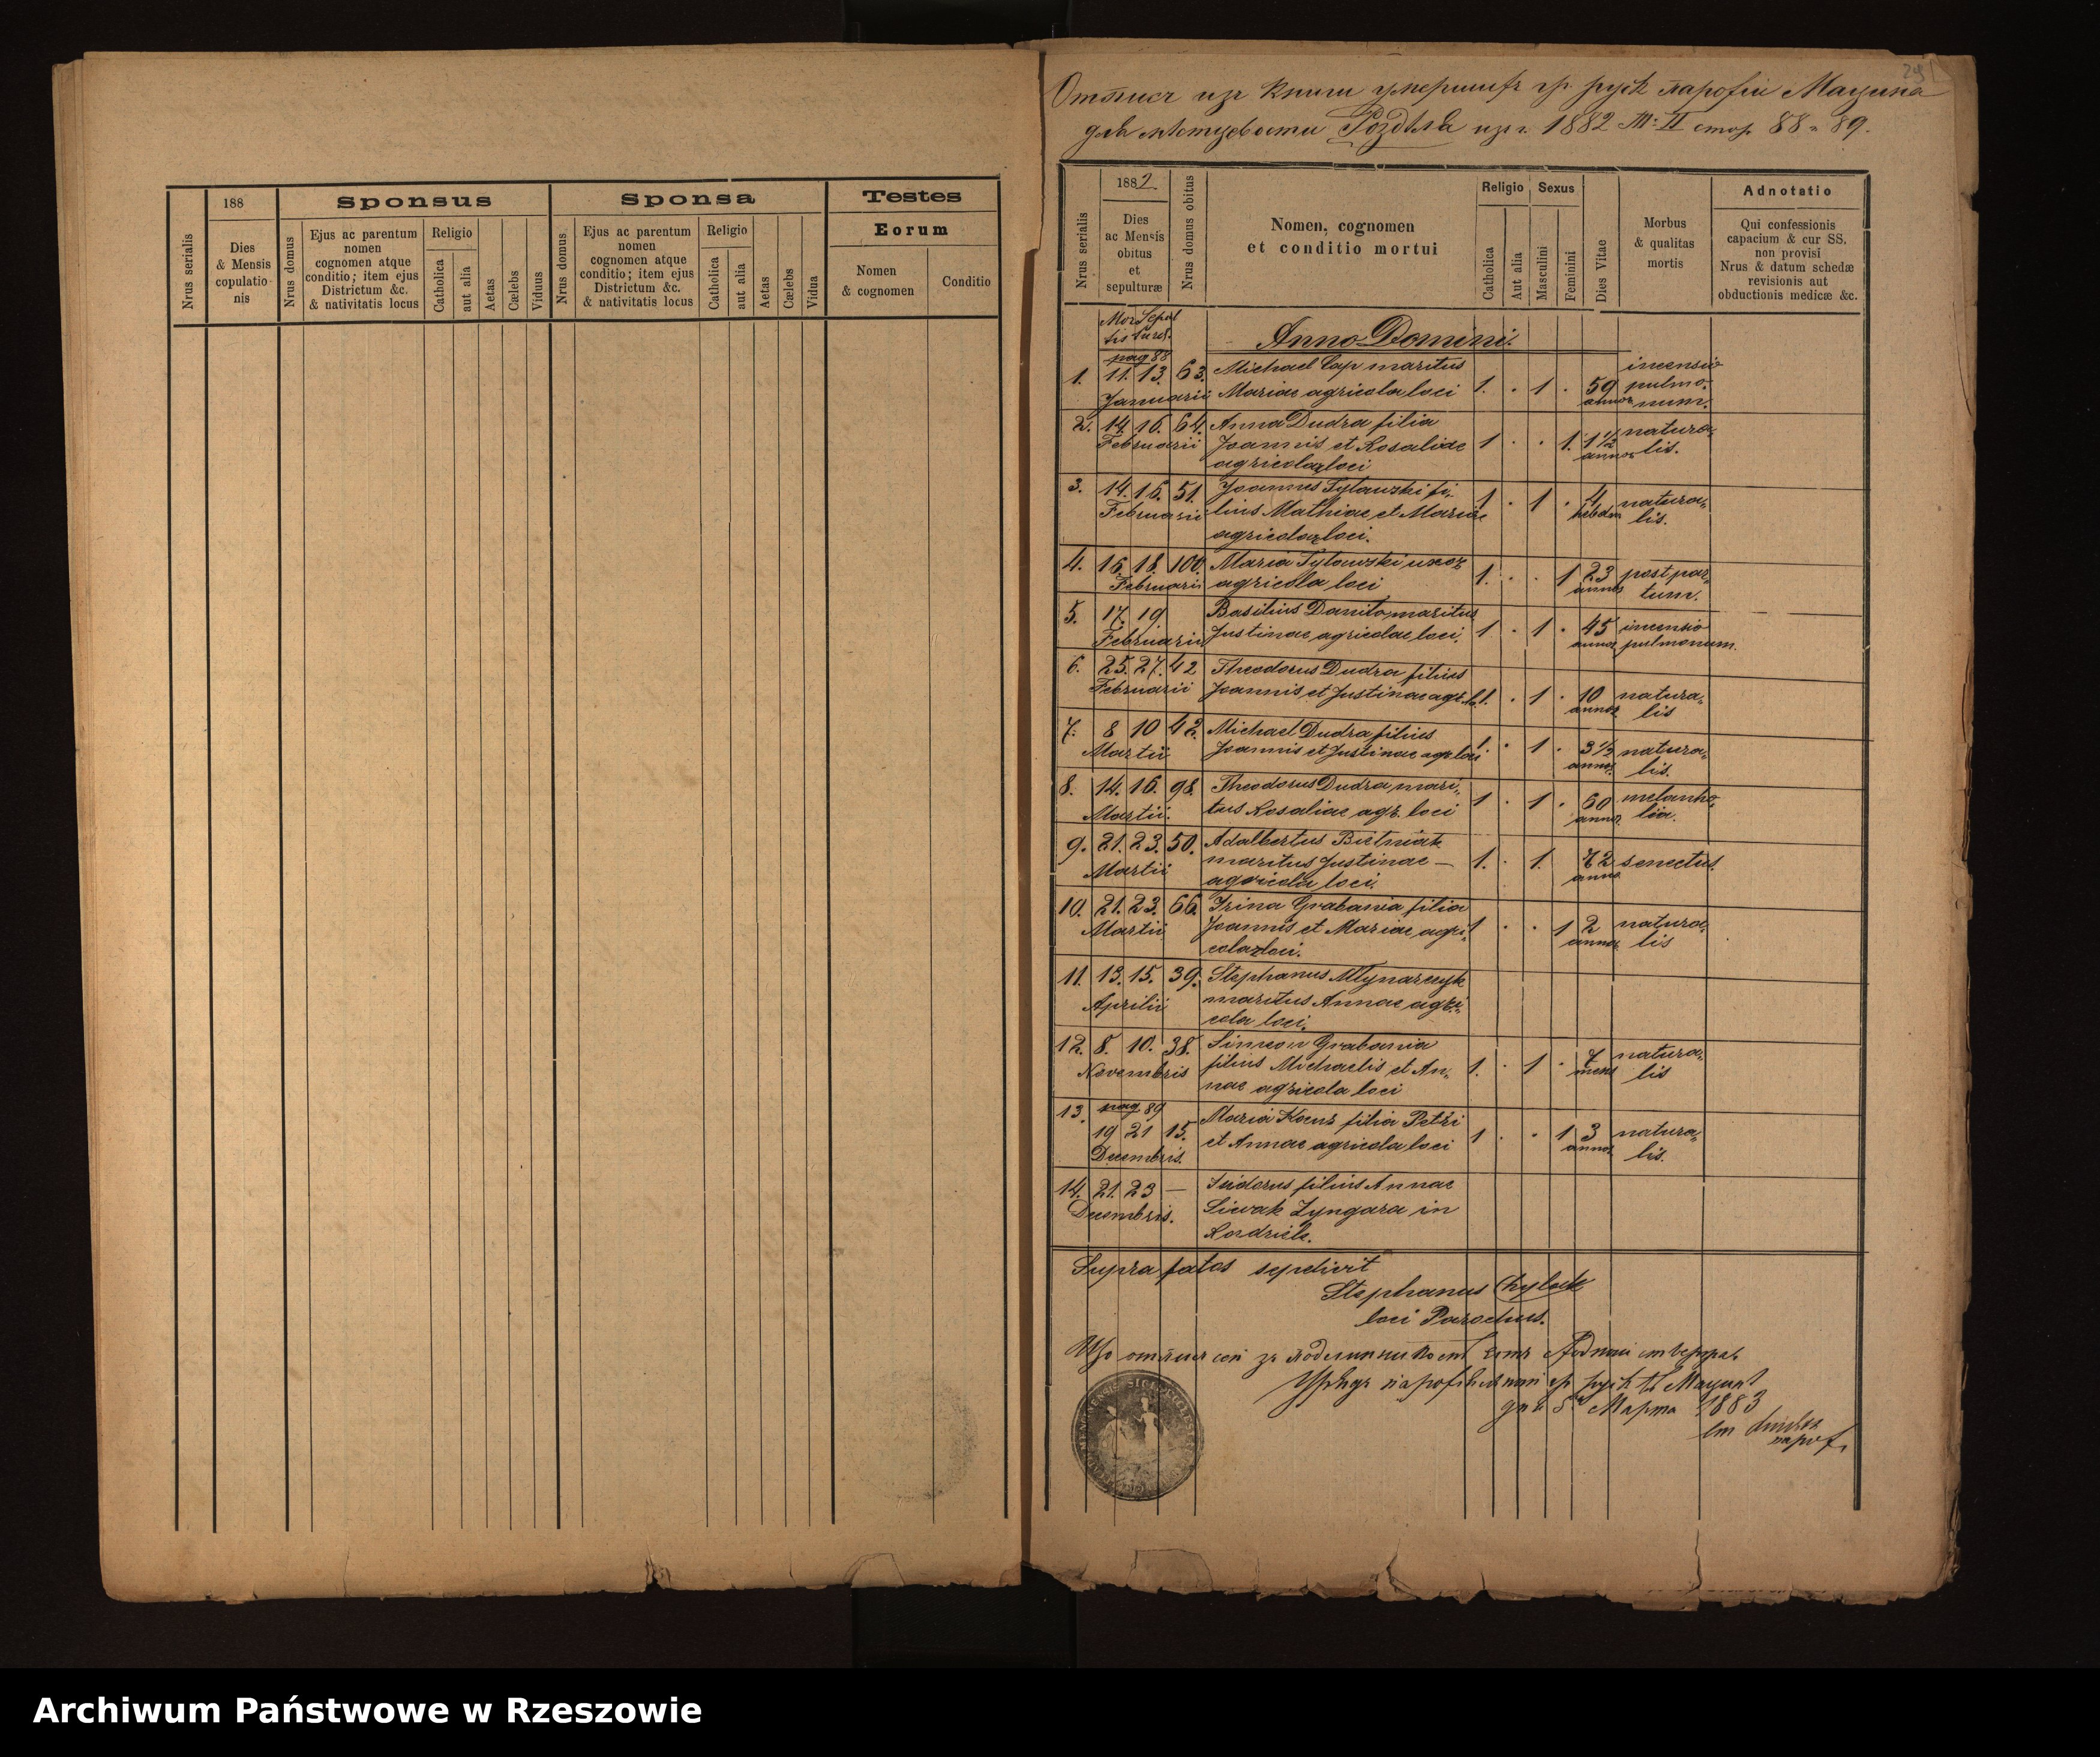 188
Sponsus
Sponsa
Testes
Nrus serialis
Dies
& Mensis
copulatio-
nis
Nrus domus
Ejus ac parentum
nomen
cognomen atque
conditio; item ejus
Districtum &c.
& nativitatis locus
Religio
Catholica
aut alia
Aetas
Cælebs
Viduus
Nrus domus
Ejus ac parentum
nomen
cognomen atque
conditio; item ejus
Districtum &c.
& nativitatis locus
Religio
Catholica
aut alia
Aetas
Cælebs
Vidua
Eorum
Nomen
& cognomen
Conditio
Отписъ изъ книги умершихъ гр. руск. парофіи Мацина
для мѣстцевости Роздѣля изъ г. 1882 Т: II стор. 88 - 89.
Nrus serialis
1882
Dies
ac Mensis
obitus
et
sepulturæ
Nrus domus obitus
Nomen, cognomen
et conditio mortui
Religio
Catholica
Aut alia
Sexus
Masculini
Feminini
Dies Vitae
Morbus
& qualitas
mortis
Adnotatio
Qui confessionis
capacium & cur SS.
non provisi
Nrus & datum schedæ
revisionis aut
obductionis medicæ &c.
Mor Sepul
tis turæ.
Anno Domini.
pag 88
1. 11. 13. 63. Michael Cap maritus incensio
Januarii Mariae agricola loci 1. . 1 . 59 pulmo-
annor num.
2. 14. 16. 64. Anna Dudra filia natura-
Februarii Joannis et Rosaliae 1 . . 1. 1½ lis.
agricolar loci annor
3. 14. 16. 51. Joannes Sylawski fi-
Februarii lius Mathiae et Mariae 1 . 1 . 4 natura-
agricolar loci. hebdm lis.
4. 16. 18. 100. Maria Sylowski uxor
Februarii agricola loci 1. . . 1 23 post par-
annor tum.
5. 17. 19 Basilius Danilo maritus
Februarii Justinae agricolae loci 1 . 1 . 45 incensio
annor pulmonum.
6. 25. 27. 42 Theodorus Dudra filius
Februarii Joannis et Justinae agr. lo. 1. . 1 . 10 natura-
annor lis
7. 8 10 42. Michael Dudra filius
Martii Joannis et Justinae agr loci 1 . 1 . 3½ natura-
annor lis.
8. 14. 16. 98. Theodorus Dudra mari-
Martii. tus Rosaliae agr. loci 1 . 1 . 60 melanho-
annor lia.
9. 21. 23. 50. Adalbertus Bietniak
Martii maritus Justinae — 1. . 1. 72 senectus.
agricola loci. annor
10. 21. 23. 66. Irina Grabania filia
Martii Joannis et Mariae agri- 1 . . 1 2 natura-
colar loci. annor lis
11. 13. 15. 39. Stephanus Mlynarczyk
Aprilii maritus Annae agri-
cola loci.
12. 8. 10. 38. Simeon Grabania
Novembris filius Michaelis et An- 1. . 1 . 7 natura-
nae agricola loci mens lis
13. pag 89
19 21 15. Maria Kocur filia Petri
Decembris. et Annae agricola loci 1 . . 1 3 natura-
annor lis.
14. 21. 23 — Isidorus filius Annae
Decembris. Siwak Zyngara in
Rozdziele.
Supra fatos sepelivit
Stephanus Chylak
loci Parochus.
Що отписъ сей зъ
Урядъ парофіяльный гр. руск. въ Мацинѣ
дня 5. Марта 1883
Archiwum Państwowe w Rzeszowie